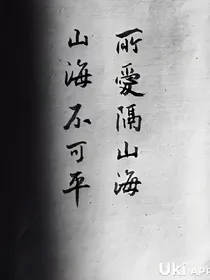 所愛隔山海
山海不可平
Uki APP